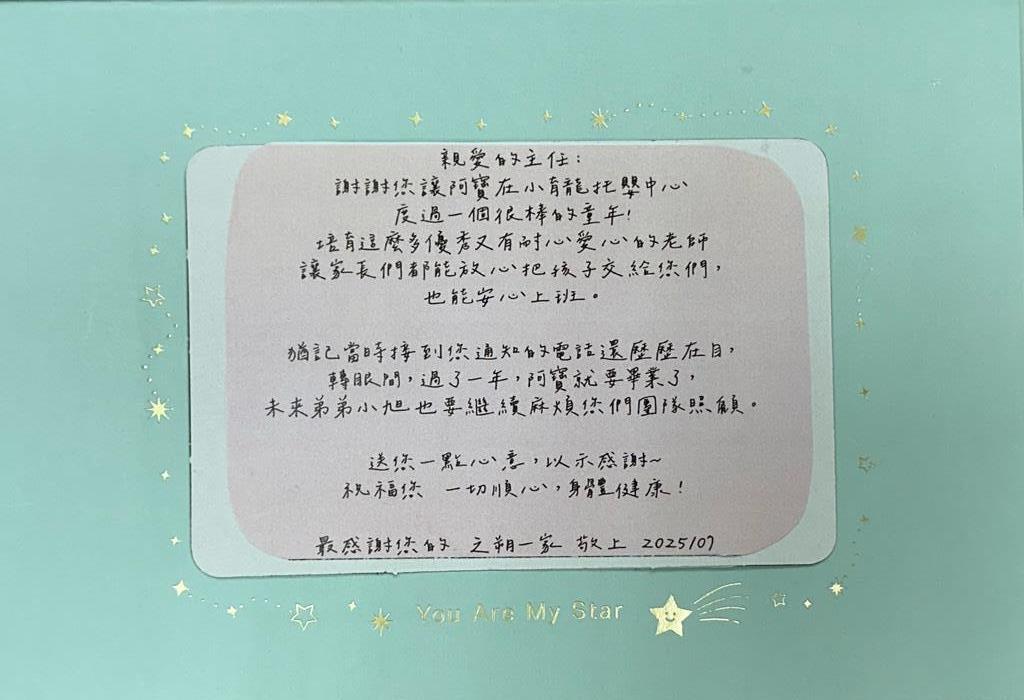 親愛的主任：
謝謝您讓阿寶在小育龍托嬰中心
度過一個很棒的童年!
培育這麼多優秀又有耐心愛心的老師
讓家長們都能放心把孩子交給您們，
也能安心上班。
猶記當時接到您通知的電話還歷歷在目，
轉眼間，過了一年，阿寶就要畢業了，
未來弟弟小旭也要繼續麻煩您們團隊照顧。
送您一點心意，以示感謝~
祝福您 一切順心，身體健康!
最感謝您的 之朔一家 敬上 2025/07
You Are My Star